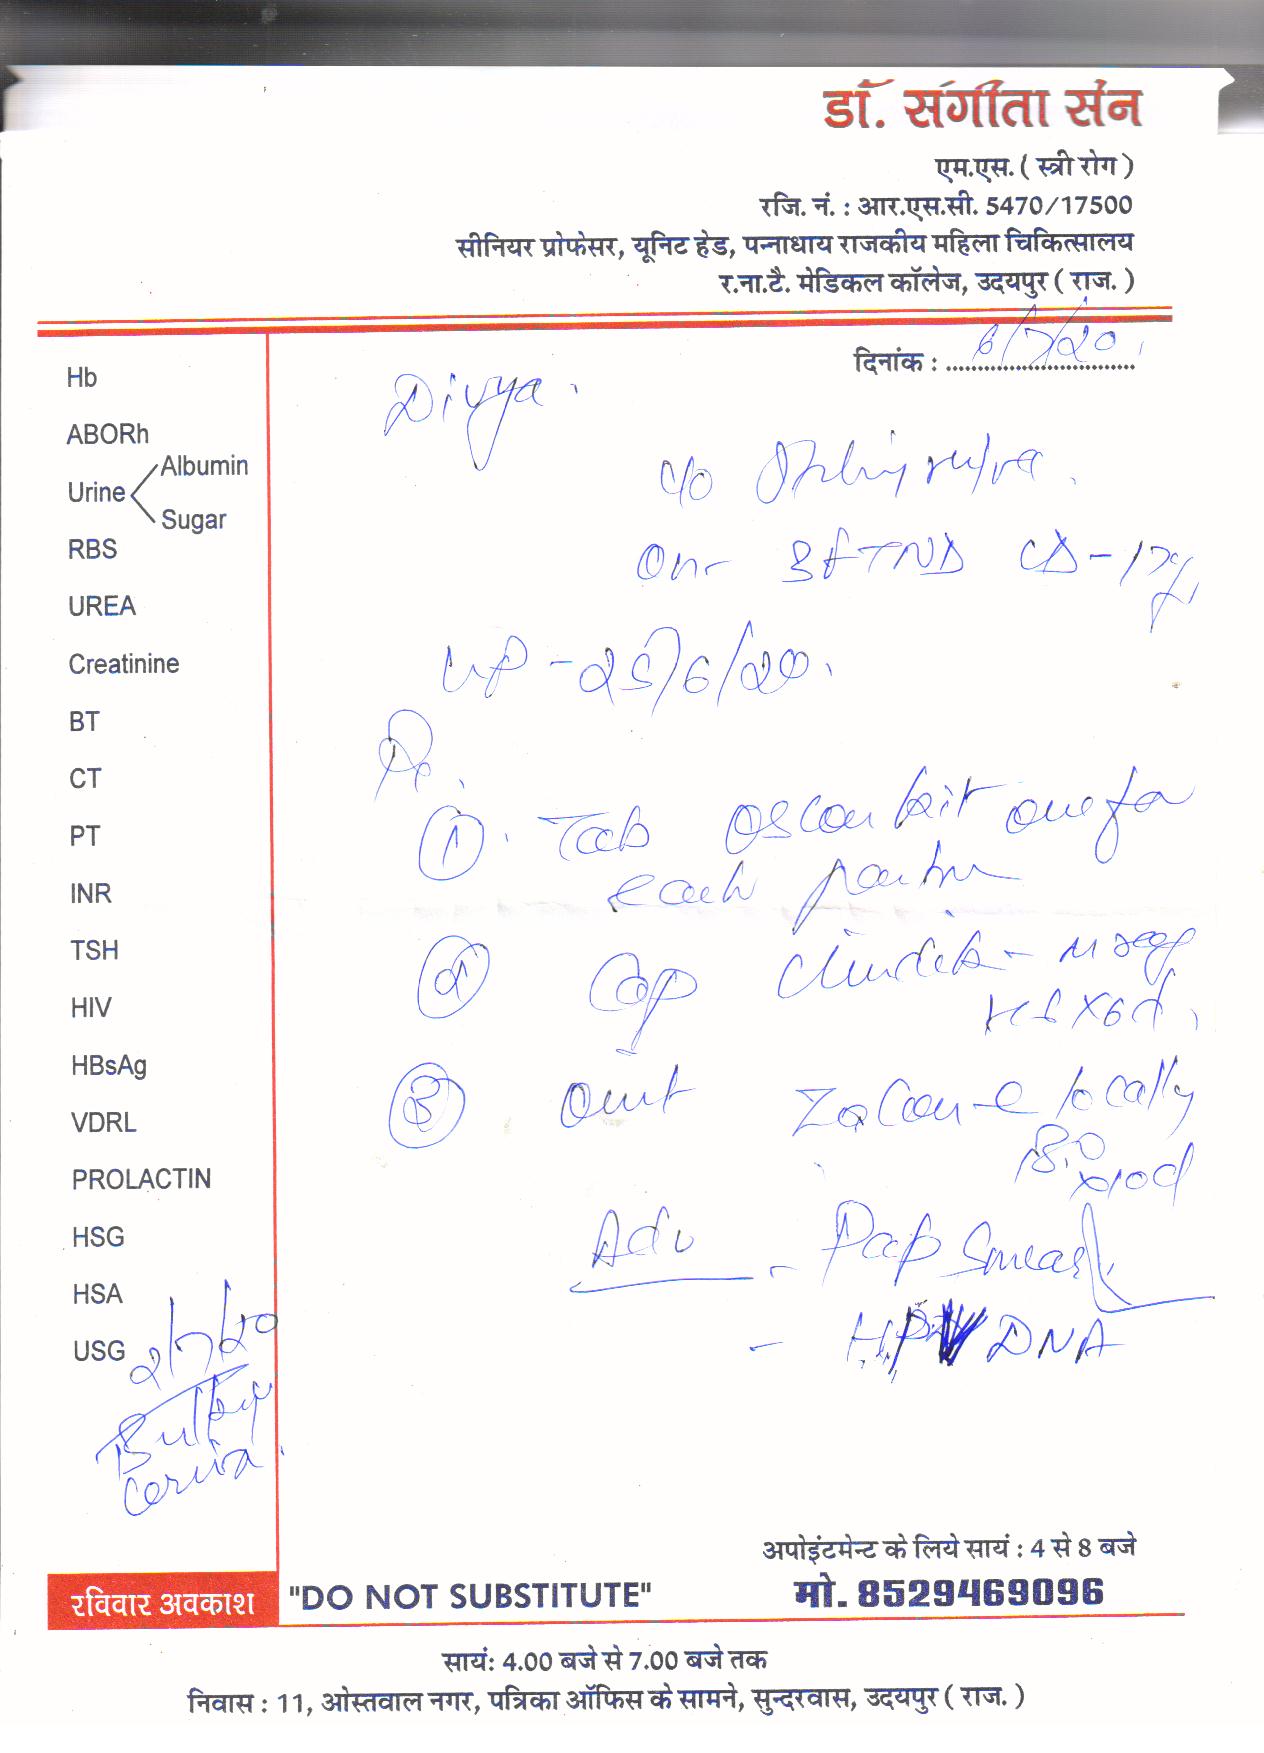 डॉ. संगीता सेन
एम.एस. ( स्त्री रोग )
रजि. नं. : आर.एस.सी. 5470/17500
सीनियर प्रोफेसर, यूनिट हेड, पन्नाधाय राजकीय महिला चिकित्सालय
र.ना.टै. मेडिकल कॉलेज, उदयपुर ( राज. )
दिनांक : 6/7/20
Hb
ABORh
Urine
Albumin
Sugar
RBS
UREA
Creatinine
BT
CT
PT
INR
TSH
HIV
HBsAg
VDRL
PROLACTIN
HSG
HSA
USG
2/7/20
Bulky
Divya.
c/o
3FTND
-25/6/20.
① Tab kit one for
each
② Cap
③ locally
x10d
Adv - Pap Smear
- HPV DNA
अपोइंटमेन्ट के लिये सायं : 4 से 8 बजे
रविवार अवकाश "DO NOT SUBSTITUTE" मो. 8529469096
सायं: 4.00 बजे से 7.00 बजे तक
निवास : 11, ओस्तवाल नगर, पत्रिका ऑफिस के सामने, सुन्दरवास, उदयपुर ( राज. )